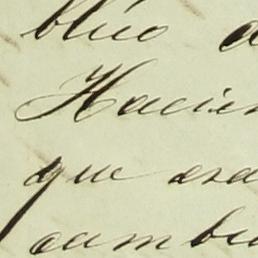 blico a
Hacien
que esa
cambio